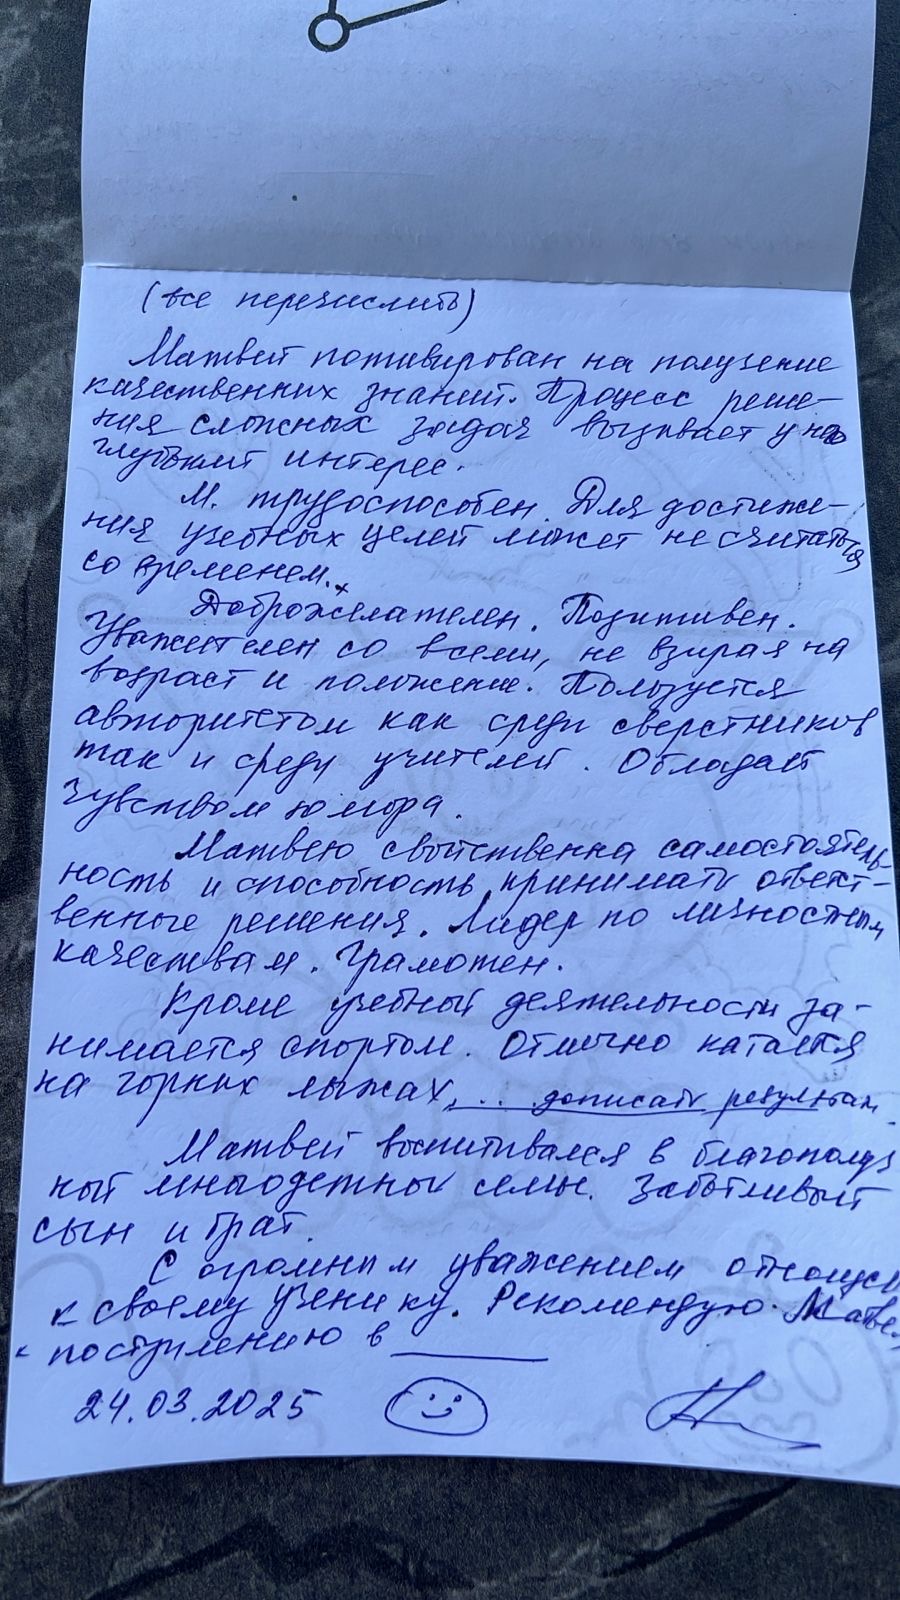 (все перечислить)
Матвей мотивирован на получение
качественных знаний. Процесс реше-
ния сложных задач вызывает у него
глубокий интерес.
М. трудоспособен. Для достиже-
ния учебных целей может не считаться
со временем.
Доброжелателен. Позитивен.
Уважителен со всеми, не взирая на
возраст и положение. Пользуется
авторитетом как среди сверстников
так и среди учителей. Обладает
чувством юмора.
Матвею свойственна самостоятель-
ность и способность принимать ответст-
венные решения. Лидер по личностным
качествам. Грамотен.
Кроме учебной деятельности за-
нимается спортом. Отлично катается
на горных лыжах, ... дописать результаты
Матвей воспитывался в благополуч
ной многодетной семье. Заботливый
сын и брат.
С огромным уважением отношусь
к своему ученику. Рекомендую Матвея
к поступлению в ______
24.03.2025